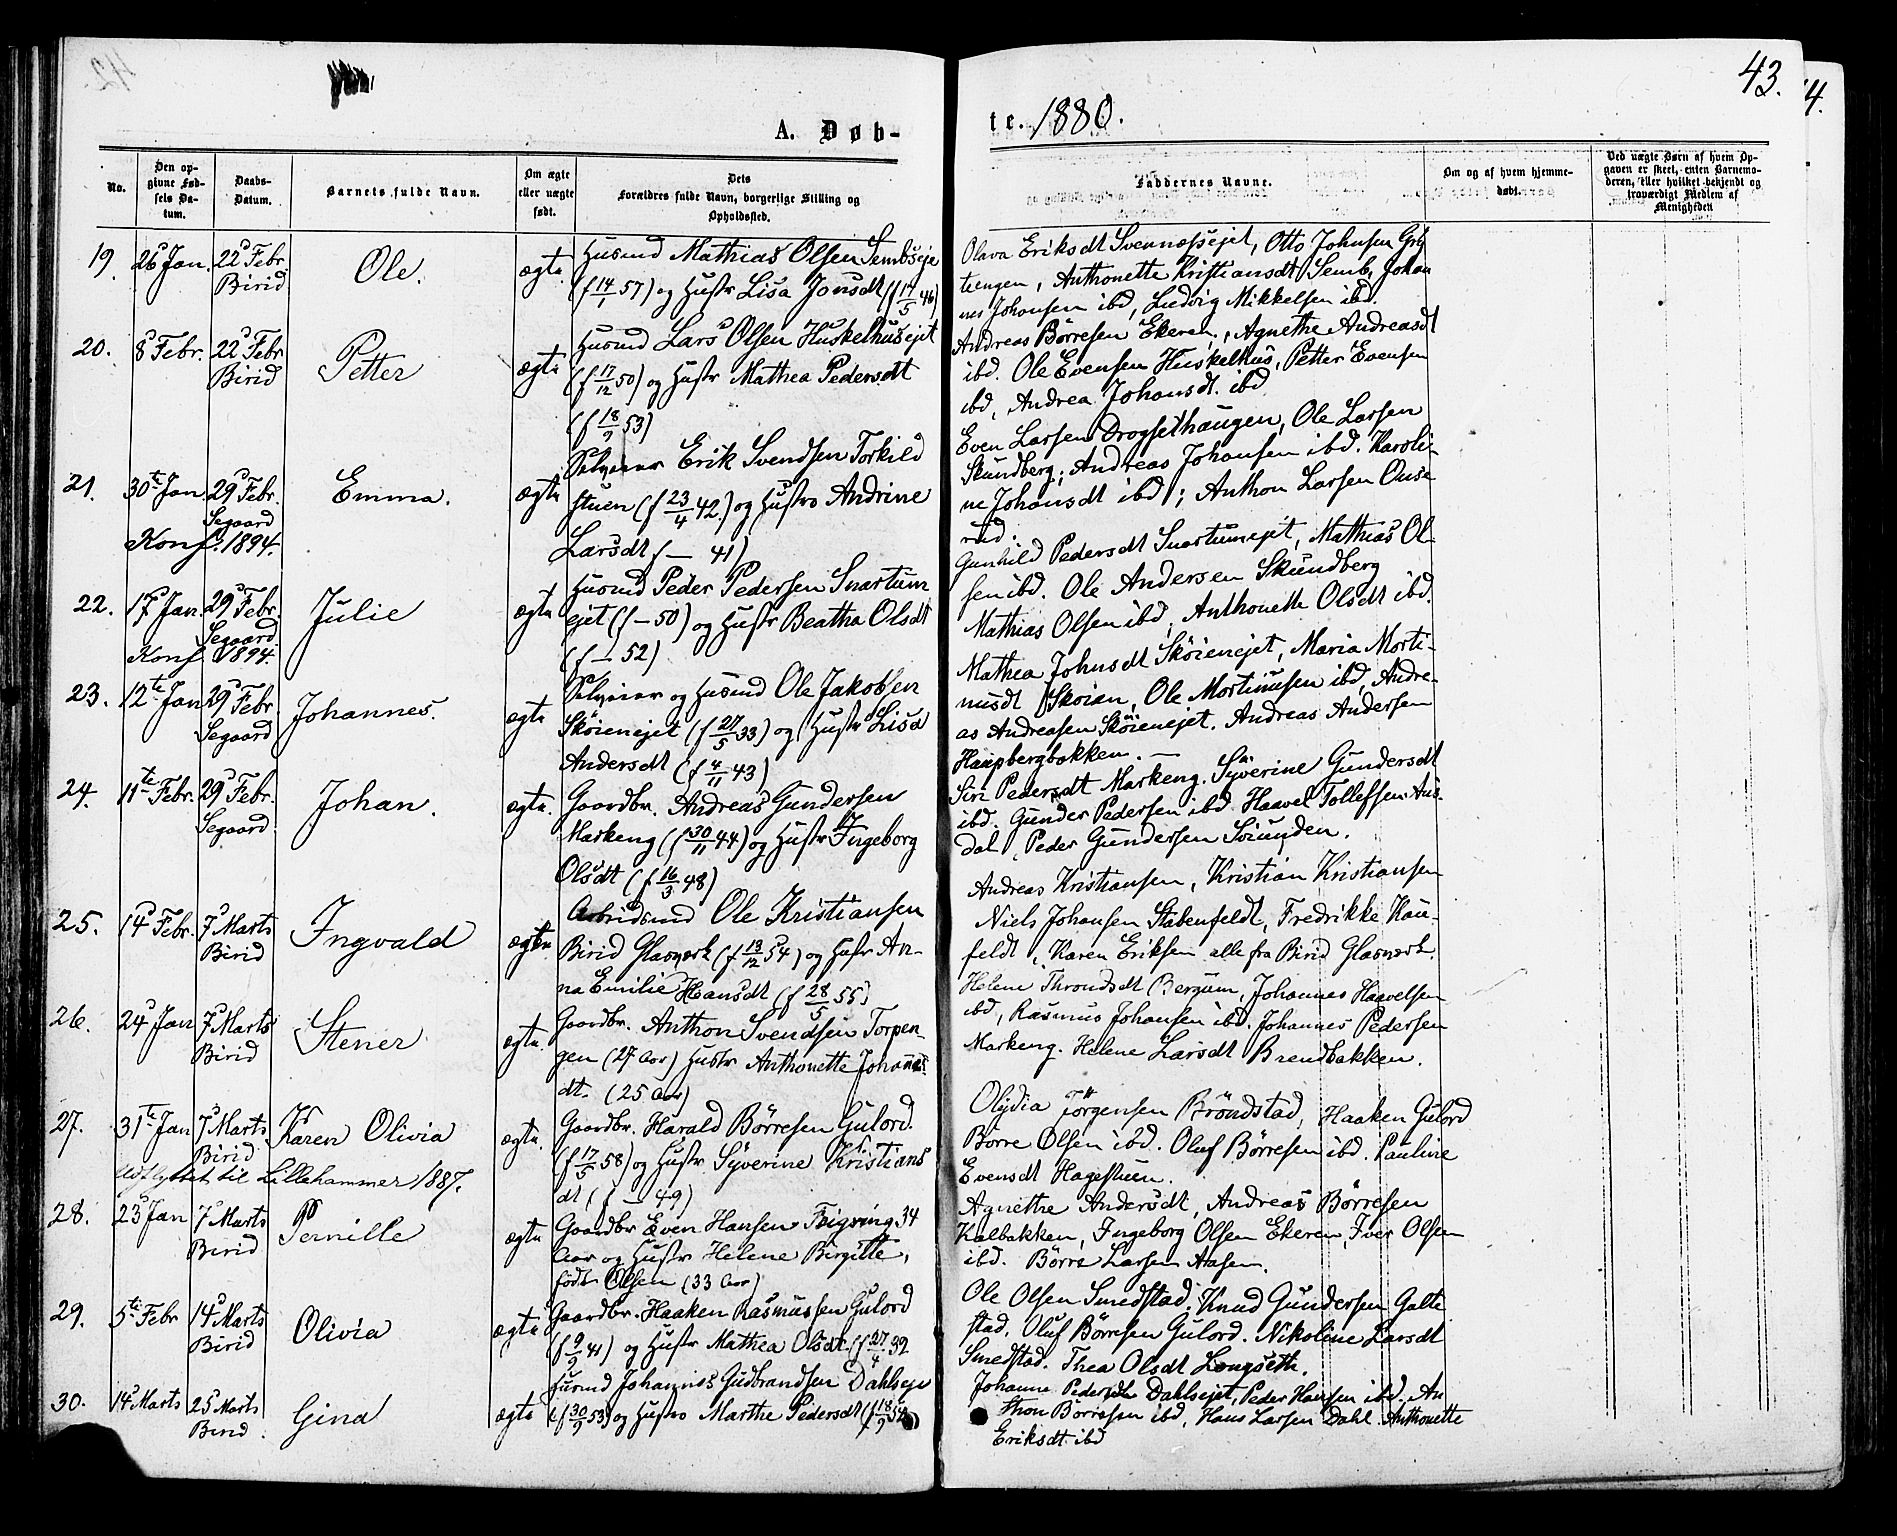 43.
A. Døb-
te. 1880.
No.
Den op-
givne Fød-
sels Da-
tum.
Daabs-
Datum.
Barnets fulde Navn.
Om ægte
eller uægte
født.
Dets
Forældres fulde Navn, borgerlige Stilling og
Opholdssted.
Faddernes Navne.
Om og af hvem hjemme-
døbt.
Ved uægte Børn af hvem Op-
gaven er skeet, enten Barnemo-
deren, eller hvilket bekjendt og
troværdigt Medlem af
Menigheden
19. 26 Jan. 22 Febr Birid
Ole.
ægte
Husmd Mathias Olsen Sembseje
(f 14/1 57) og Hustr Lisa Jonsdt (f 17/5 46)
Olava Eriksdt Svennæssejet, Otto Johnsen
tengen, Anthonette Kristiansdt Semb, Johan
nes Johansen ibd, Ludvig Mikkelsen ibd.
20. 8 Febr. 22 Febr Birid
Petter
ægte
Husmd Lars Olsen Huskelhusejet
(f 17/12 50) og Hustr Mathea Pedersdt
(f 18/9 53)
Andreas Börresen Ekeren, Agnethe Andreasdt
ibd. Ole Evensen Huskelhus, Petter Evensen
ibd, Andrea Johansdt. ibd
21. 30te Jan 29 Febr. Segaard
Konf. 1894.
Emma.
ægte
Selveier Erik Svendsen Torkild
stuen (f 23/4 42.) og Hustro Andrine
Larsdt (— 41)
Even Larsen Drogsethaugen, Ole Larsen
Skundberg; Andreas Johansen ibd. Karoli-
ne Johansdt ibd; Anthon Larsen Ouse
rud.
22. 17 Jan. 29 Febr. Segaard
Konf 1894.
Julie
ægte
Husmd Peder Pedersen Snartum
ejet (f — 50) og Hustr Beatha Olsdt
(f — 52)
Gunhild Pedersdt Snartumejet, Mathias Ol-
sen ibd. Ole Andersen Skundberg
Mathias Olsen ibd, Anthonette Olsdt ibd.
23. 12te Jan 29 Febr Segaard
Johannes.
ægte
Selveier og Husmd Ole Jakobsen
Sköienejet (f 27/5 33) og Hustr Lisa
Andersdt (f 4/11 43)
Mathea Johnsdt Sköienejet, Maria Morti-
nusdt Skoien, Ole Mortinusen ibd, Andre-
as Andreasen Sköienejet. Andreas Andersen
Haupbergbakken. —
24. 11te Febr. 29 Febr. Segaard
Johan.
ægte.
Gaardbr. Andreas Gundersen
Markeng (f 30/11 44) og Hustr Ingeborg
Olsdt (f 16/3 48)
Siri Pedersdt Markeng. Syverine Gundersdt
ibd. Gunder Pedersen ibd Haavel Tollefsen Aus-
dal, Peder Gundersen
25. 14 Febr. 7 Marts Birid
Ingvald
ægte
Arbeidsmd Ole Kristiansen
Birid Glasværk (f 13/12 54) og Hustr An-
na Emilie Hansdt (f 28/5 55)
Andreas Kristiansen, Kristian Kristiansen
Niels Johansen Stabenfeldt, Fredrikke Kau-
feldt, Karen Eriksen alle fra Birid Glasværk.
26. 24 Jan 7 Marts Birid
Stener
ægte.
Gaardbr. Anthon Svendsen Torpen-
gen (27 Aar) Hustr Anthonette Johannes
dt. (25 Aar)
Helene Throndsdt Bergum, Johannes Haavelsen
ibd, Rasmus Johansen ibd. Johannes Pedersen
Markeng. Helene Larsdt Brendbakken.
27. 31te Jan 7 Marts Birid
Udflyttet til Lillehammer 1887.
Karen Olivia
ægte.
Gaardbr. Harald Börresen Gulord.
(f 17/5 58) og Hustr Syverine Kristians
dt (f — 49)
Olydia Jörgensen Bröndstad, Haaken Gulord
Börre Olsen ibd. Oluf Börresen ibd. Pauline
Evensdt Hagestuen.
28. 23 Jan 7 Marts Birid
Pernille
ægte
Gaardbr Even Hansen Feigring 34
Aar og Hustr Helene Birgitte,
födt Olsen (33 Aar)
Agnethe Andersdt, Andreas Börresen
Kalbakken, Ingeborg Olsen Ekeren, Iver Olsen
ibd. Börre Larsen Aasen.
29. 5te Febr 14 Marts Birid
Olivia
ægte
Gaardbr. Haaken Rasmussen Gulord
(f 9/2 41) og Hustr Mathea Olsdt. (f 27/4 39
Ole Olsen Smedstad. Knud Gundersen Galte
stad. Oluf Börresen Gulord. Nikoline Larsdt
Smedstad. Thea Olsdt Longseth.
30. 14 Marts 25 Marts Birid.
Gina
ægte
Husmd Johannes Gudbrandsen Dahlseje
(f 30/9 53) og Hustro Marthe Pedersdt (f 18/9
Johanne Pedersdt Dahlsejet, Peder Hansen ibd. An
thon Börresen ibd, Hans Larsen Dahl. Anthonette
Eriksdt ibd